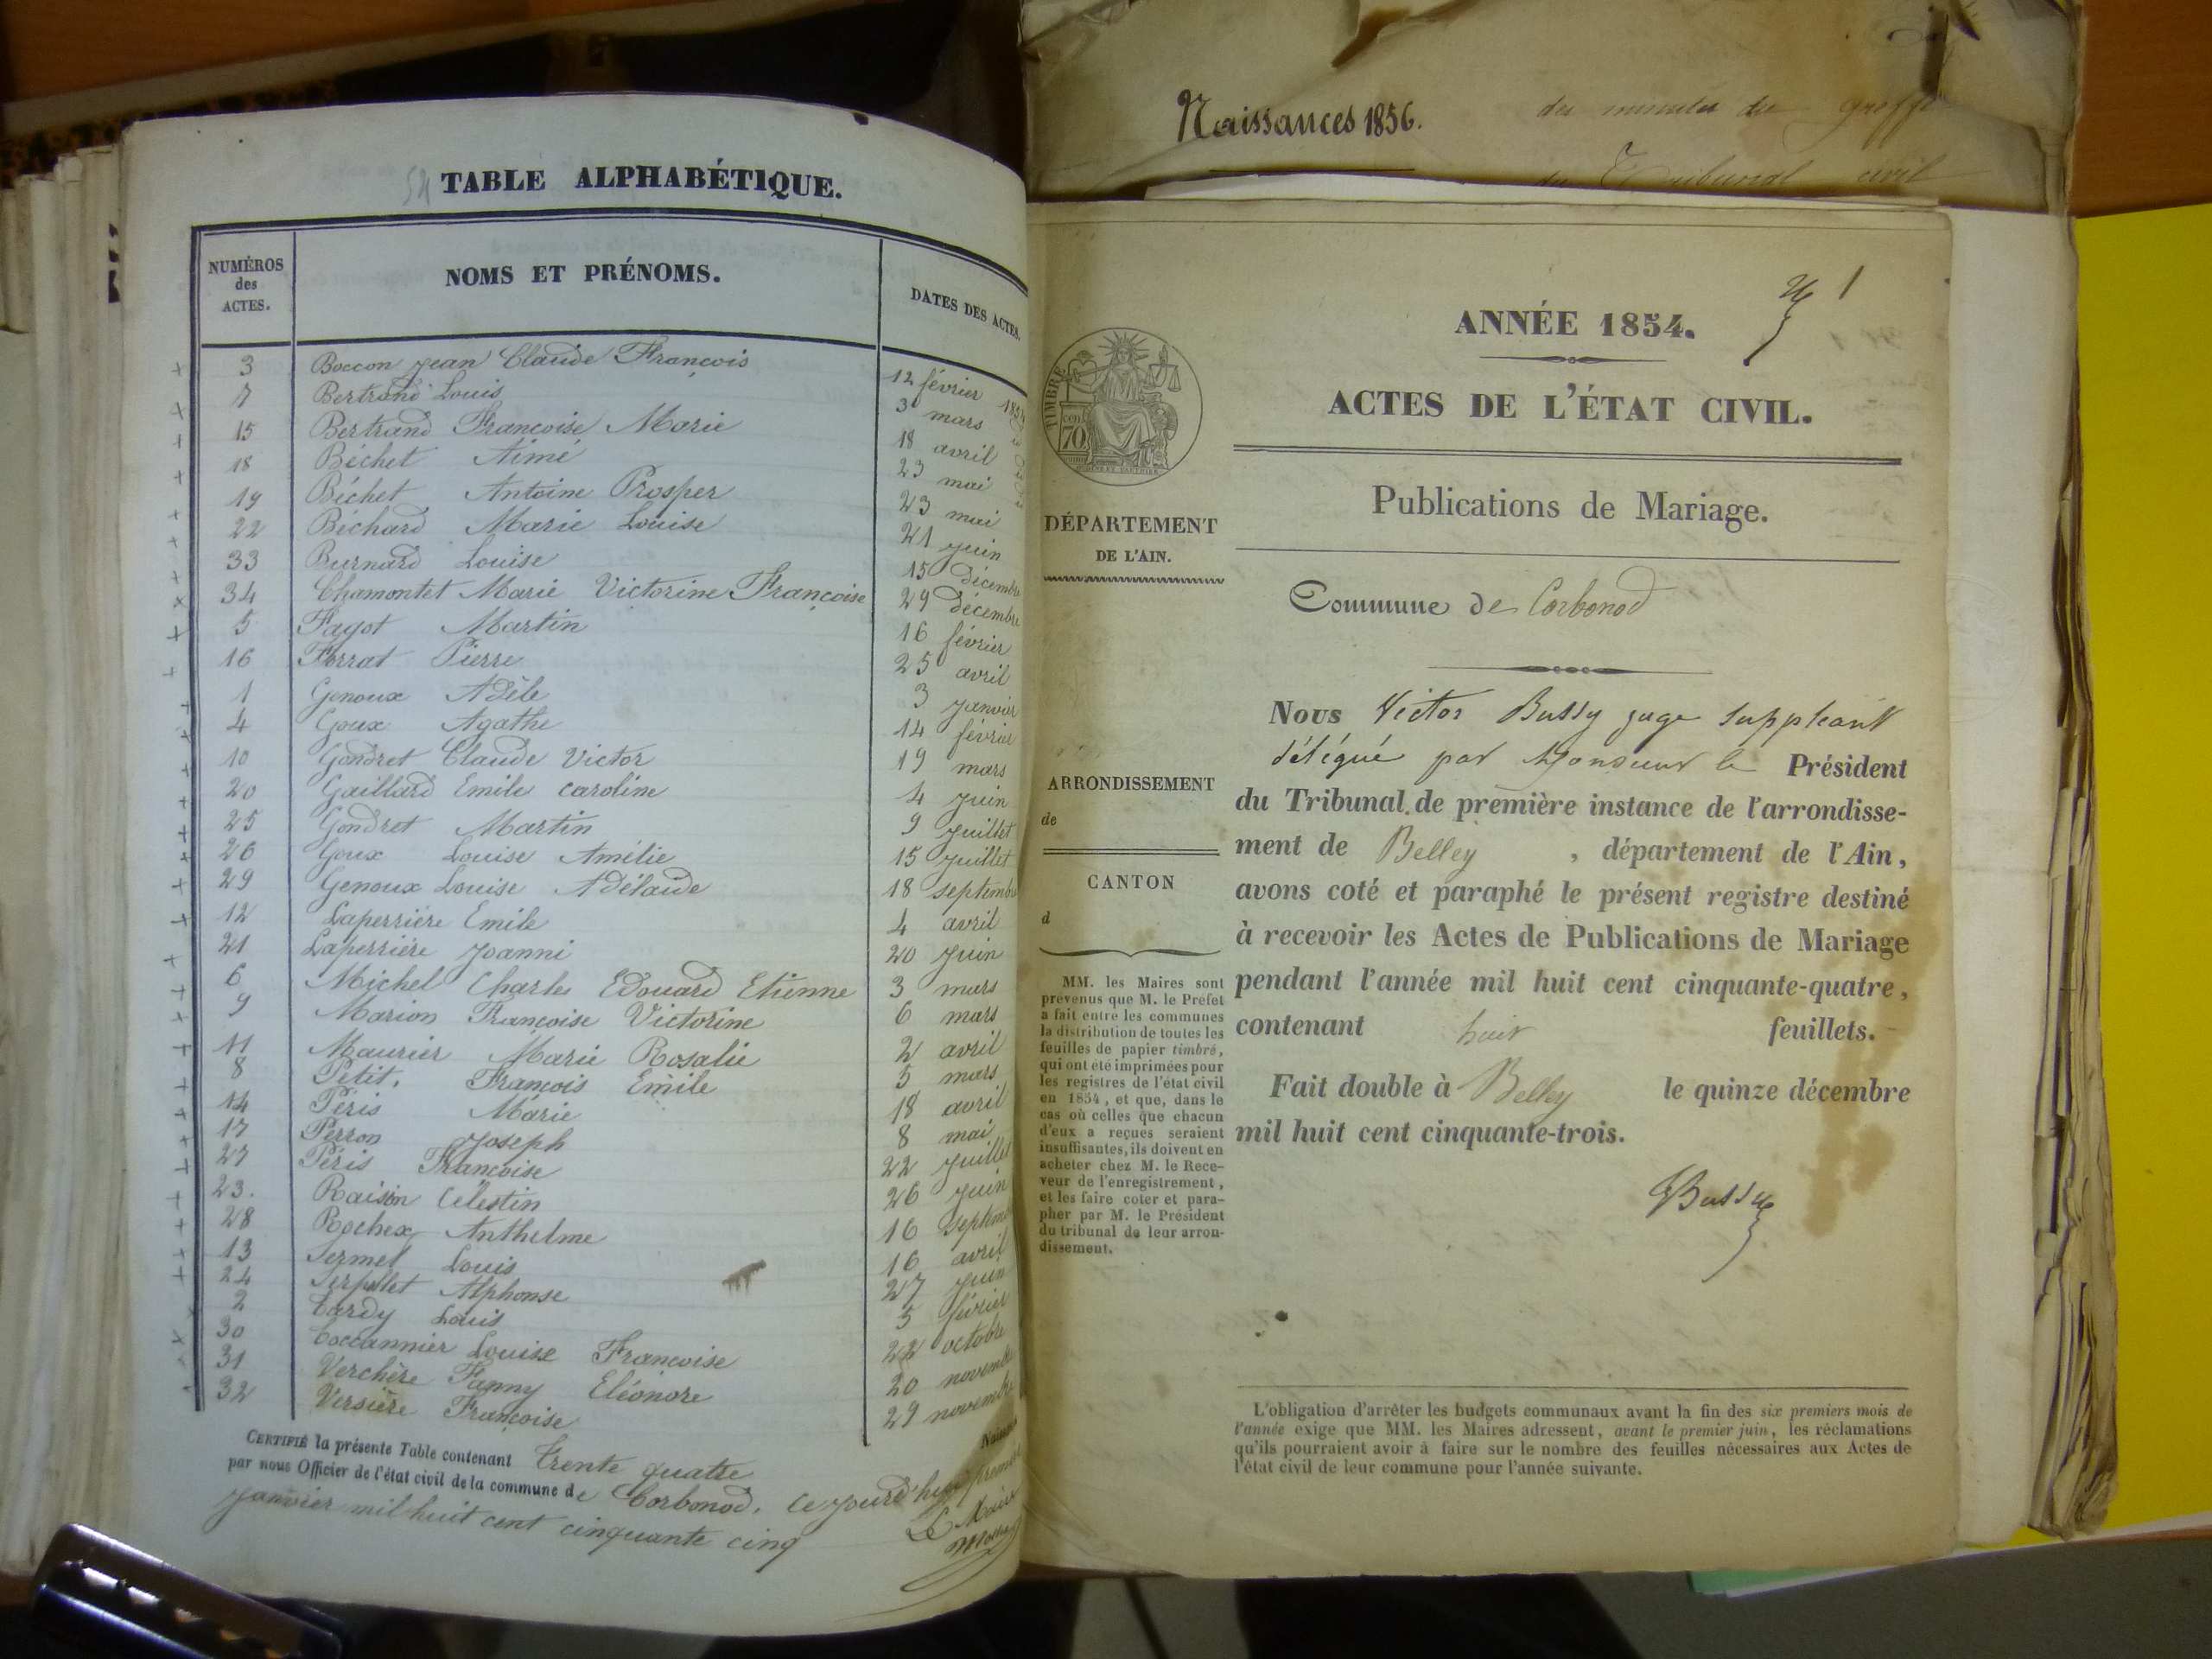 54 TABLE ALPHABÉTIQUE.
NUMÉROS
des
ACTES.
NOMS ET PRÉNOMS.
DATES DES ACTES.
3 Boccon Jean Claude François 12 février 1854
7 Bertrand Louis 3 mars
15 Bertrand Françoise Marie 18 avril
18 Béchet Aimé 23 mai
19 Béchet Antoine Prosper 23 mai
22 Béchard Marie Louise 21 juin
33 Burnard Louise 15 décembre
34 Chamontet Marie Victorine Françoise 29 décembre
5 Fagot Martin 16 février
16 Ferrat Pierre 25 avril
1 Genoux Adèle 3 janvier
4 Goux Agathe 14 février
10 Gondret Claude Victor 19 mars
20 Gaillard Emile caroline 4 juin
25 Gondret Martin 9 juillet
26 Goux Louise Amélie 15 juillet
29 Genoux Louise Adélaide 18 septembre
12 Laperrière Emile 4 avril
21 Laperrière Joanni 20 juin
6 Michel Charles Edouard Etienne 3 mars
9 Marion Françoise Victorine 6 mars
11 Maurier Marie Rosalie 2 avril
8 Petit. François Emile 5 mars
14 Péris Marie 18 avril
17 Perron Joseph 8 mai
27 Péris Françoise 22 juillet
23. Raisin Célestin 26 juin
28 Rochex Anthelme 16 septembre
13 Sermet Louis 16 avril
24 Serpollet Alphonse 27 juin
2 Tardy Louis 5 février
30 Toccannier Louise Françoise 22 octobre
31 Verchère Fanny Eléonore 20 novembre
32 Versière Françoise 29 novembre
CERTIFIÉ la présente Table contenant Trente quatre
par nous Officier de l'état civil de la commune de Corbonod. Ce jourd'hui premier
janvier mil huit cent cinquante cinq
Le Maire
Naissances 1856.
des minutes du greffe
du Tribunal civil
1
ANNÉE 1854.
ACTES DE L'ÉTAT CIVIL.
Publications de Mariage.
TIMBRE
70
DÉPARTEMENT
DE L'AIN.
Commune de Corbonod
Nous Victor Bussy juge suppléant
délégué par Monsieur le Président
du Tribunal de première instance de l'arrondisse-
ment de Belley, département de l'Ain,
avons coté et paraphé le présent registre destiné
à recevoir les Actes de Publications de Mariage
pendant l'année mil huit cent cinquante-quatre,
contenant huit feuillets.
Fait double à Belley le quinze décembre
mil huit cent cinquante-trois.
Bussy
ARRONDISSEMENT
de
CANTON
d
MM. les Maires sont
prévenus que M. le Préfet
a fait entre les communes
la distribution de toutes les
feuilles de papier timbré,
qui ont été imprimées pour
les registres de l'état civil
en 1854, et que, dans le
cas où celles que chacun
d'eux a reçues seraient
insuffisantes, ils doivent en
acheter chez M. le Rece-
veur de l'enregistrement,
et les faire coter et para-
pher par M. le Président
du tribunal de leur arron-
dissement.
L'obligation d'arrêter les budgets communaux avant la fin des six premiers mois de
l'année exige que MM. les Maires adressent, avant le premier juin, les réclamations
qu'ils pourraient avoir à faire sur le nombre des feuilles nécessaires aux Actes de
l'état civil de leur commune pour l'année suivante.